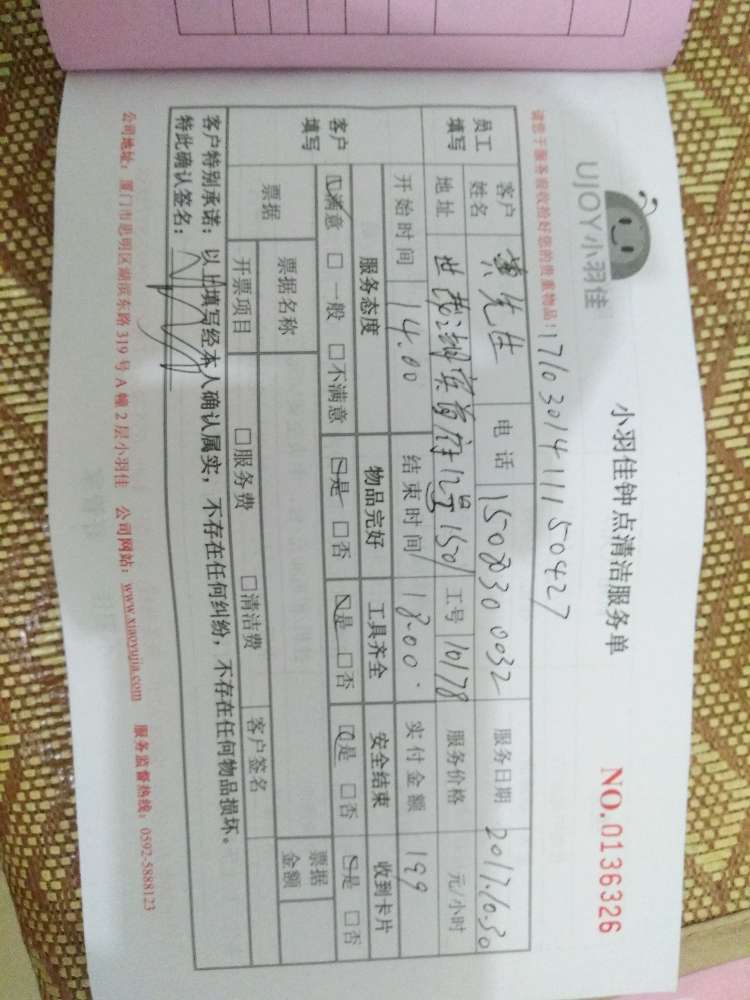 UJOY小羽佳
小羽佳钟点清洁服务单
NO.0136326
请您于服务前收拾好您的贵重物品!
1710301411150427
员工填写 客户姓名 黄先生 电话 1508300032 服务日期 2017.10.30
地址 世茂湖滨首府12号1501 工号 10178 服务价格 元/小时
开始时间 14.00 结束时间 18.00. 实付金额 199
客户填写 服务态度 物品完好 工具齐全 安全结束 收到卡片
☑满意 □一般 □不满意 ☑是 □否 ☑是 □否 ☑是 □否 ☑是 □否
票据 票据名称 票据金额
开票项目 □服务费 □清洁费 客户签名
客户特别承诺：以上填写经本人确认属实，不存在任何纠纷，不存在任何物品损坏。
特此确认签名：
公司地址：厦门市思明区湖滨东路319号A幢2层小羽佳 公司网站：www.xiaoyujia.com 服务监督热线：0592-5888123